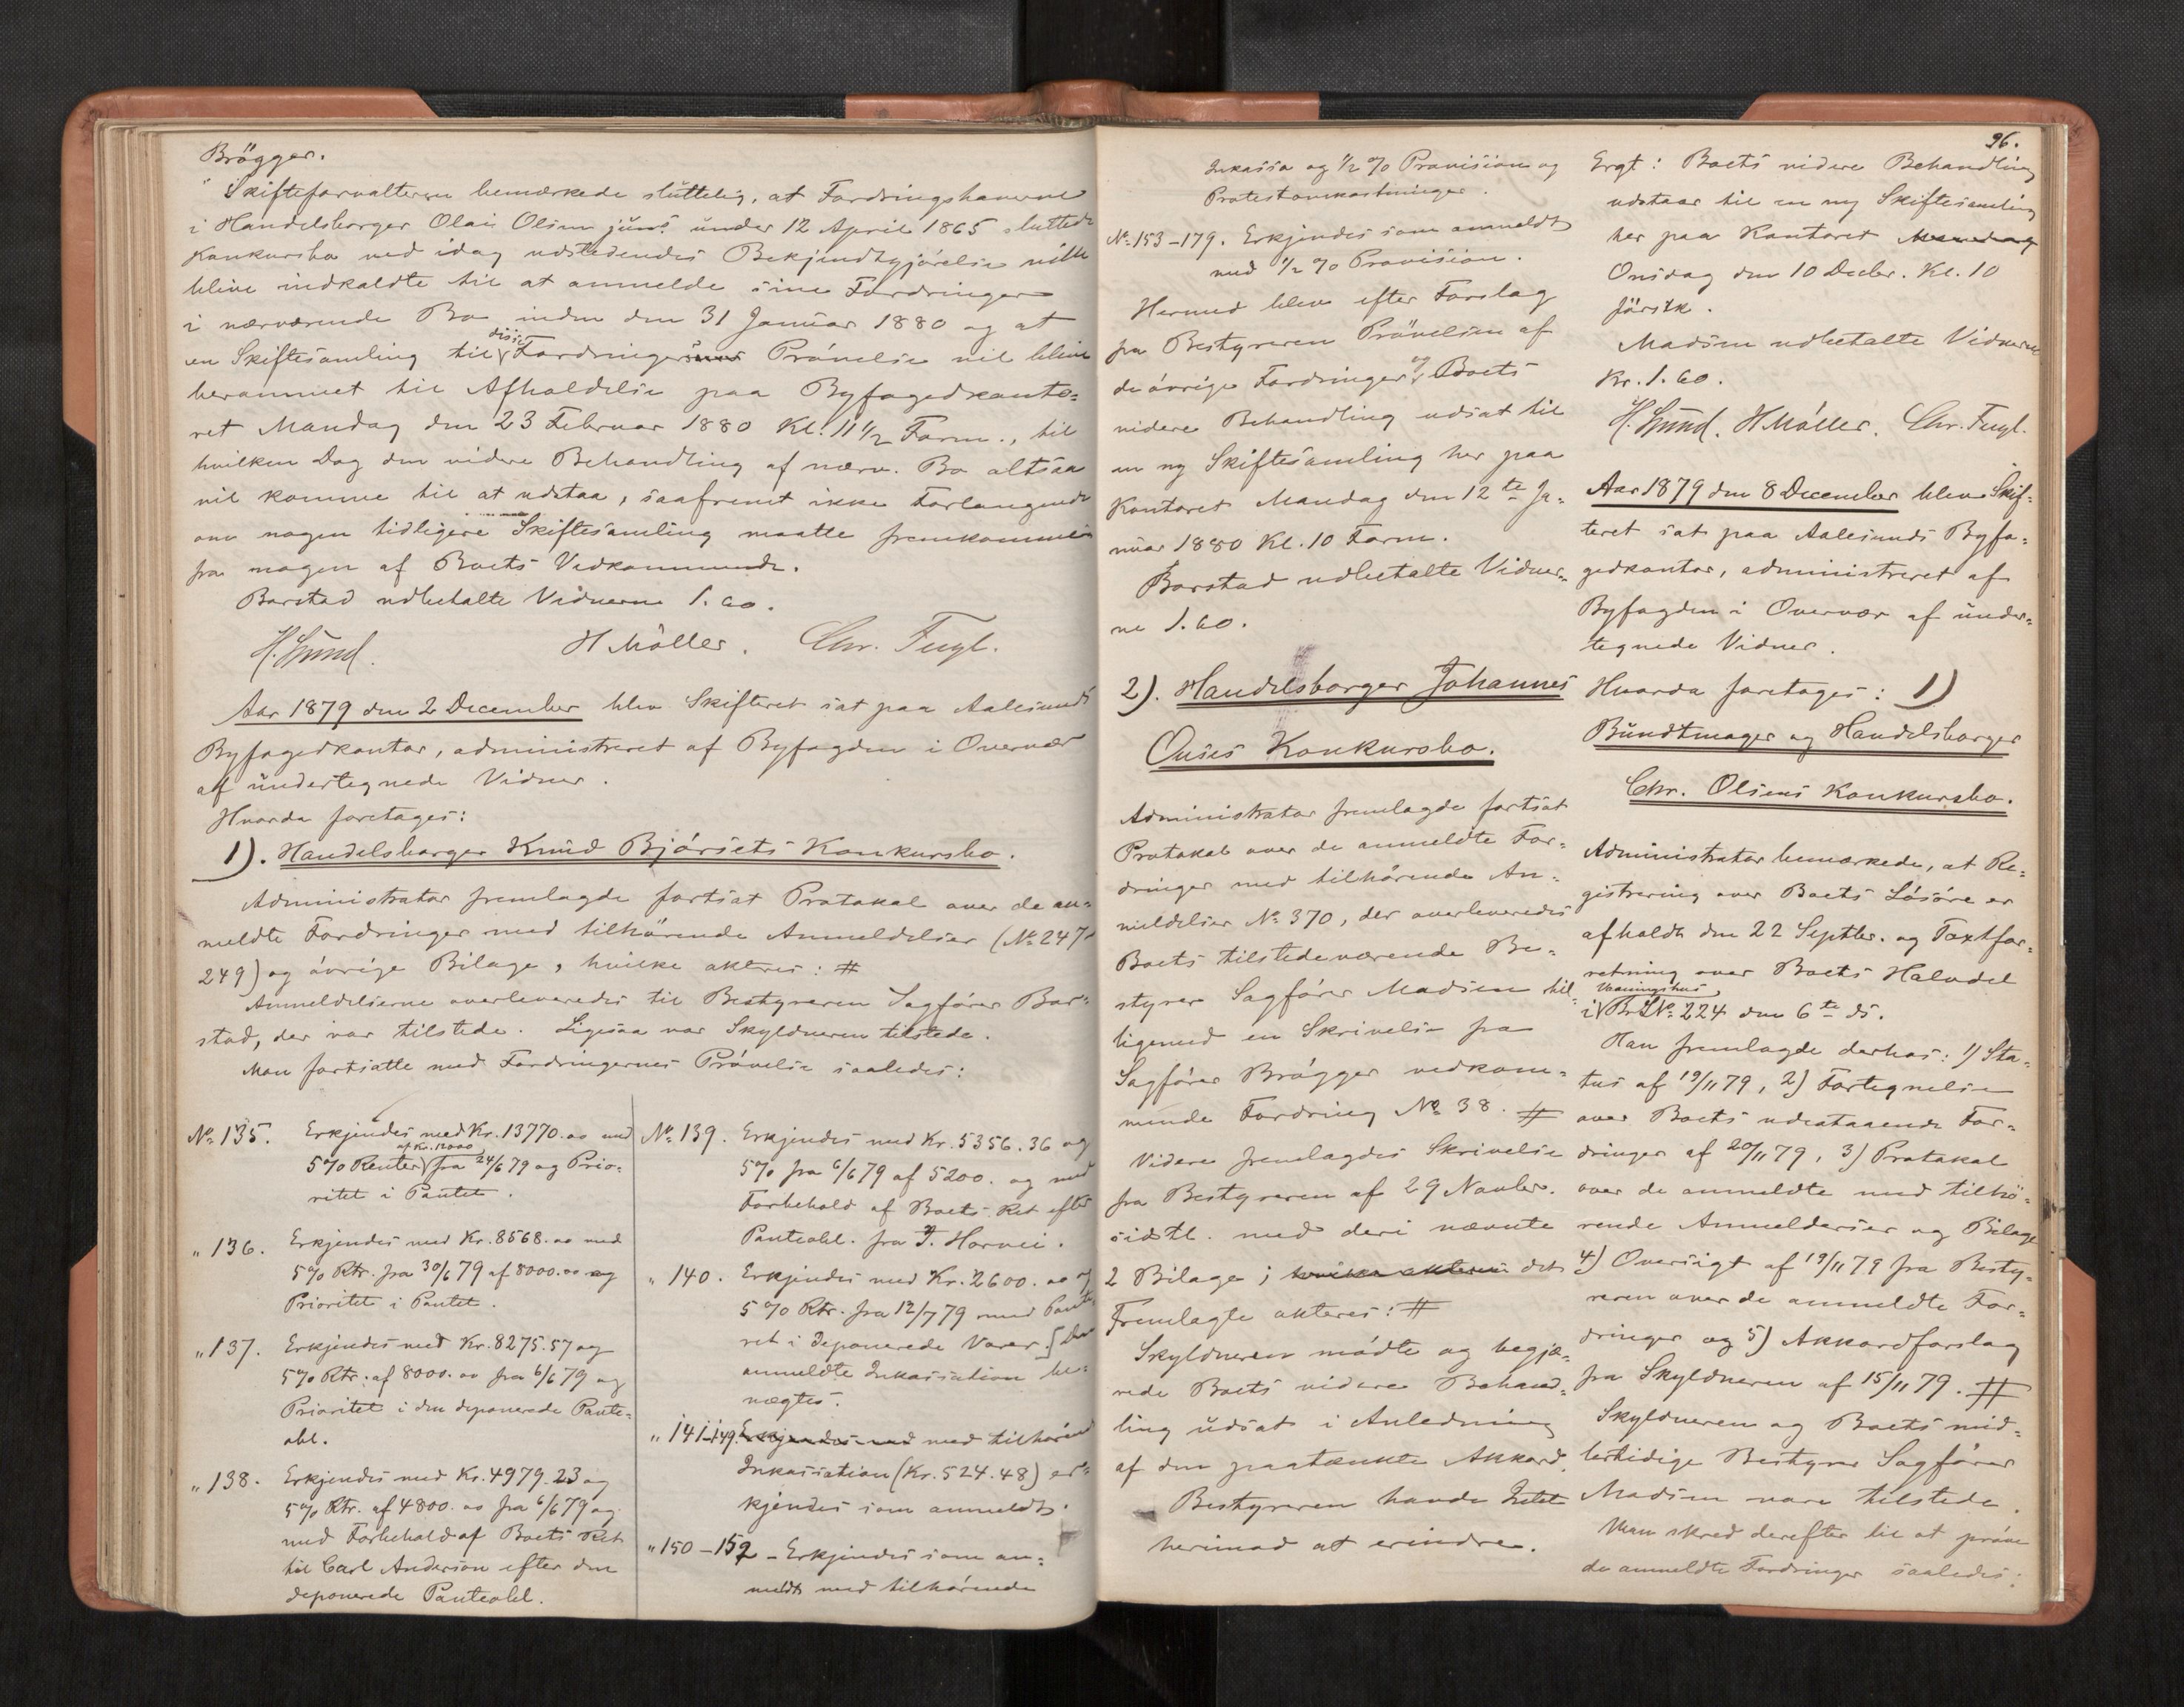 Brøgger.
Skifteforvalteren bemærkede sluttelig, at Fordringshaverne
i Handelsborger Olai Olsen juns. under 12 April 1865 sluttede
Konkursbo ved idag udstedendes Bekjendtgjørelse vilde
blive indkaldte til at anmelde sine Fordringer
i nærværende Bo inden den 31 Januar 1880 og at
en Skiftesamling til disse Fordringers Prøvelse vil blive
berammet til Afholdelse paa Byfogedkonto-
ret Mandag den 23 Februar 1880 Kl. 11 1/2 Form., til
hvilken Dag den videre Behandling af nærv. Bo altsaa
vil komme til at udstaa, saafremt ikke Forlangende
om nogen tidligere Skiftesamling maatte fremkomme
fra nogen af Boets Vedkommende.
Barstad udbetalte Vidnerne 1.60.
H. Lund. H Møller. Chr. Fugl.
Aar 1879 den 2 December blev Skifteret sat paa Aalesunds
Byfogedkontor, administreret af Byfogden i Overvær
af undertegnede Vidner.
Hvorda foretages:
1). Handelsborger Knud Bjørsets Konkursbo.
Administrator fremlagde fortsat Protokol over de an-
meldte Fordringer med tilhørende Anmeldelser (No 247
249) og øvrige Bilage, hvilke akteres: #
Anmeldelserne overleveredes til Bestyreren Sagfører Bar-
stad, der var tilstede. Ligesaa var Skyldneren tilstede.
Man fortsatte med Fordringernes Prøvelse saaledes:
No 135. Erkjendes med Kr. 13770.00 med
5% Renter af Kr. 12000 fra 24/6 79 og Prio-
ritet i Pantet.
" 136. Erkjendes med Kr. 8568.00 med
5% Rtr. fra 30/6 79 af 8000.00 og
Prioritet i Pantet.
" 137. Erkjendes med Kr. 8275.57 og
5% Rtr. af 8000.00 fra 6/6 79 og
Prioritet i den deponerede Pante-
obl.
" 138. Erkjendes med Kr. 4979.23 og
5% Rtr. af 4800.00 fra 6/6 79 og
med Forbehold af Boets Ret
til Carl Anderson efter den
deponerede Panteobl.
No 139. Erkjendes med Kr. 5356.36 og
5% fra 6/6 79 af 5200. og med
Forbehold af Boets Ret efter
Panteobl. fra J. Horvei.
" 140. Erkjendes med Kr. 2600.00 og
5% Rtr. fra 12/7 79 med Pante-
ret i deponerede Varer. [den
anmeldte Inkassation be-
nægtes.
" 141-149. Erkjendes med med tilhørende
Inkassation (Kr. 524.48) er-
kjendes som anmeldt.
" 150-152 - Erkjendes som an-
meldt med tilhørende
96.
Inkasso og 1/2 % Provision og
Protestomkostninger.
No 153-179. Erkjendes som anmeldt
med 1/2 % Provision.
Hermed blev efter Forslag
fra Bestyreren Prøvelsen af
de øvrige Fordringer og Boets
videre Behandling udsat til
en ny Skiftesamling her paa
Kontoret Mandag den 12te Ja-
nuar 1880 Kl. 10 Form.
Barstad udbetalte Vidner-
ne 1.60.
2). Handelsborger Johannes
Ouses Konkursbo.
Administrator fremlagde fortsat
Protokol over de anmeldte For-
dringer med tilhørende An-
meldelser No 370, der overleveredes
Boets tilstedeværende Be-
styrer Sagfører Madsen til-
ligemed en Skrivelse fra
Sagfører Brøgger vedkom-
mende Fordring No 38. #
Videre fremlagdes Skrivelse
fra Bestyreren af 29 Novbr.
sidstl. med deri nævnte
2 Bilage; hvilke akteres det
Fremlagte akteres: #
Skyldneren mødte og begjæ-
rede Boets videre Behand-
ling udsat i Anledning
af den paatænkte Akkord.
Bestyreren havde Intet
herimod at erindre.
Ergt: Boets videre Behandling
udstaar til en ny Skiftesamling
her paa Kontoret Mandag
Onsdag den 10 Decbr. Kl. 10
førstk.
Madsen udbetalte Vidnerne
Kr. 1.60.
H. Lund. H Møller. Chr. Fugl.
Aar 1879 den 8 December blev Skif-
teret sat paa Aalesunds Byfo-
gedkontor, administreret af
Byfogden i Overvær af under-
tegnede Vidner.
Hvorda foretages: 1)
Bundtmager og Handelsborger
Chr. Olsens Konkursbo.
Administrator bemærkede, at Re-
gistrering over Boets Løsøre er
afholdt den 22 Septbr. og Taxtfor-
retning over Boets Halvdel
i Vaaningshus Br.L No 224 den 6te ds.
Han fremlagde derhos: 1) Sta-
tus af 19/11 79, 2) Fortegnelse
over Boets udestaaende For-
dringer af 20/11 79, 3) Protokol
over de anmeldte med tilhø-
rende Anmeldelser og Bilage
4) Oversigt af 19/11 79 fra Besty-
reren over de anmeldte For-
dringer og 5) Akkordforslag
fra Skyldneren af 15/11 79. #
Skyldneren og Boets mid-
lertidige Bestyrer Sagfører
Madsen vare tilstede.
Man skred derefter til at prøve
de anmeldte Fordringer saaledes: